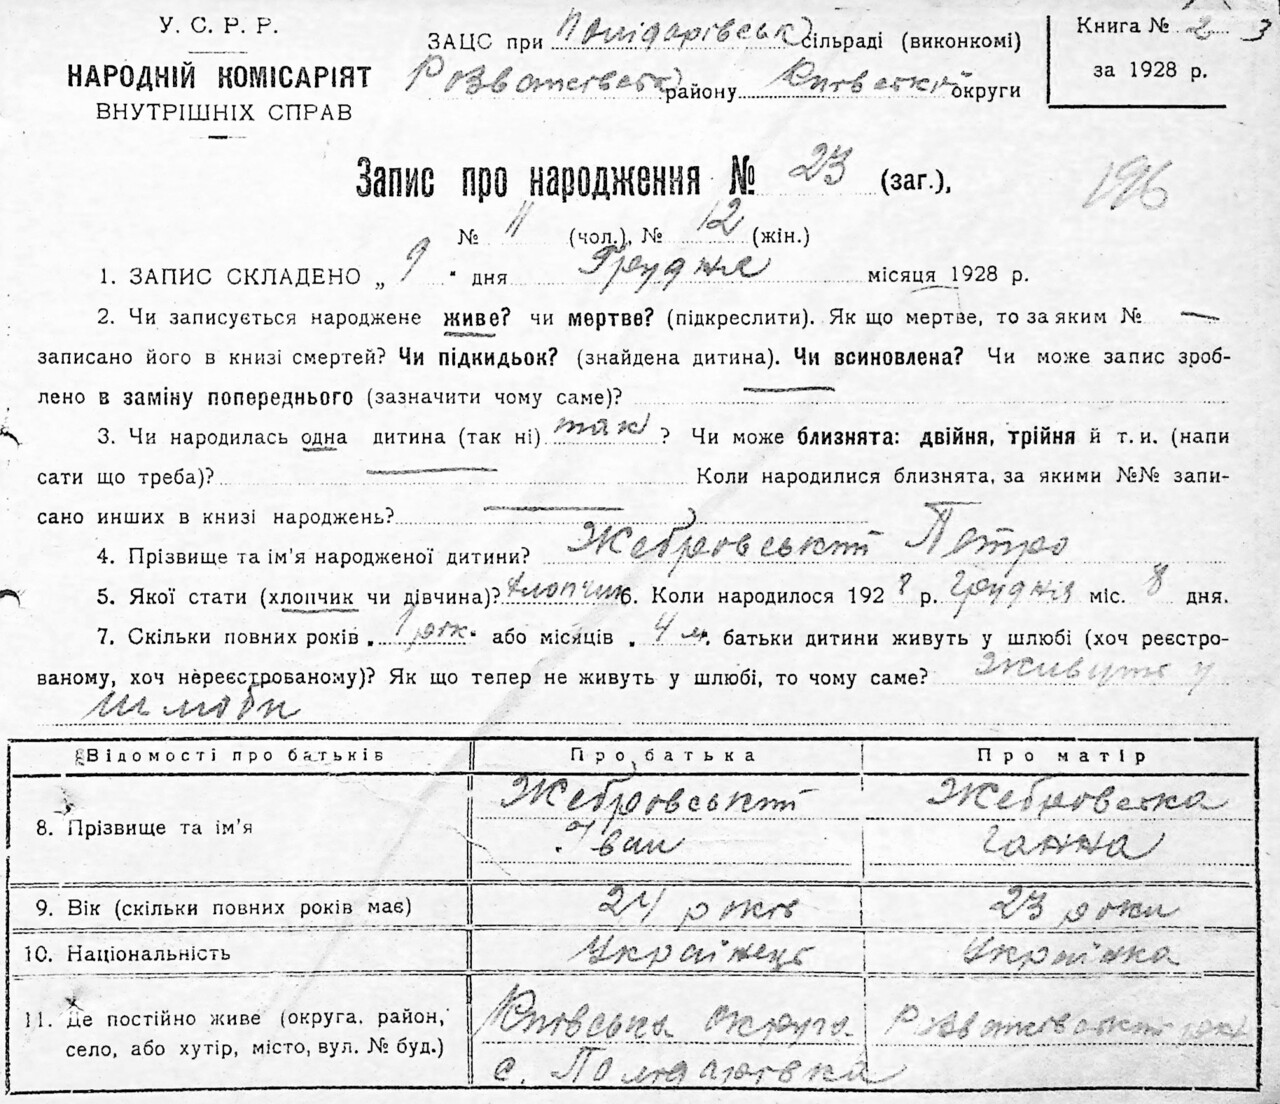 У. С. Р. Р.
НАРОДНІЙ КОМІСАРІЯТ
ВНУТРІШНІХ СПРАВ
ЗАЦС при сільраді (виконкомі)
району округи
Книга № 2 3
за 1928 р.
Запис про народження № 23 (заг.),
196
№ 11 (чол.), № 12 (жін.)
1. ЗАПИС СКЛАДЕНО „ 9 " дня Грудня місяця 1928 р.
2. Чи записується народжене живе? чи мертве? (підкреслити). Як що мертве, то за яким № —
записано його в книзі смертей? Чи підкидьок? (знайдена дитина). Чи всиновлена? Чи може запис зроб-
лено в заміну попереднього (зазначити чому саме)? —
3. Чи народилась одна дитина (так ні) так ? Чи може близнята: двійня, трійня й т. и. (напи
сати що треба)? — Коли народилися близнята, за якими №№ запи-
сано инших в книзі народжень? —
4. Прізвище та ім'я народженої дитини? Жебровський Петро
5. Якої стати (хлопчик чи дівчина)? хлопчик 6. Коли народилося 192 8 р. грудня міс. 8 дня.
7. Скільки повних років 1 рік або місяців 4 м. батьки дитини живуть у шлюбі (хоч реєстро-
ваному, хоч нереєстрованому)? Як що тепер не живуть у шлюбі, то чому саме? Живуть у
шлюбі
Відомості про батьків Про батька Про матір
8. Прізвище та ім'я Жебровський Іван Жебровська Ганна
9. Вік (скільки повних років має) 24 років 23 роки
10. Національність Українець Українка
11. Де постійно живе (округа, район, Київська округа
село, або хутір, місто, вул. № буд.) с.